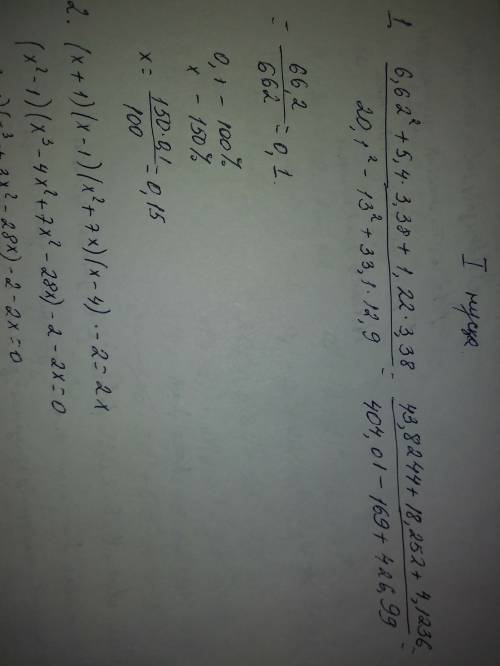 I нұсқа.
1. (6,62² + 5,4·3,38 + 1,22·3,38)/(20,1² - 13² + 33,1·12,9) = (43,8244 + 18,252 + 4,1236)/(404,01 - 169 + 426,99) =
= 66,2/662 = 0,1.
0,1 - 100%
x - 150%
x = (150·0,1)/100 = 0,15
2. (x+1)(x-1)(x²+7x)(x-4)·-2=2x
(x²-1)(x³-4x²+7x²-28x)-2-2x=0
³+3x²-28x)-2-2x=0